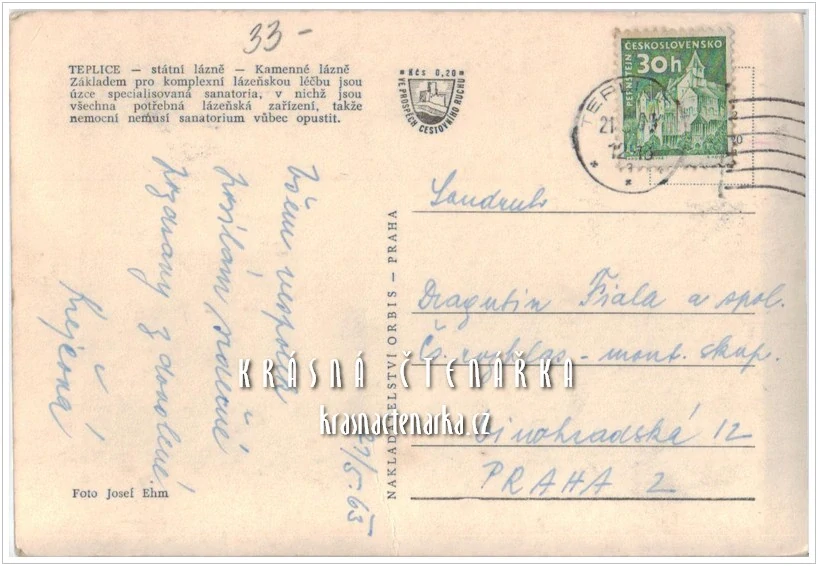 33-
TEPLICE — státní lázně — Kamenné lázně
Základem pro komplexní lázeňskou léčbu jsou
úzce specialisovaná sanatoria, v nichž jsou
všechna potřebná lázeňská zařízení, takže
nemocní nemusí sanatorium vůbec opustit.
Všem vespolek
posílám srdečné
pozdravy z dovolené
Krejčová
21/5-63
Foto Josef Ehm
NAKLADATELSTVÍ ORBIS — PRAHA
Kčs 0,20
VE PROSPĚCH CESTOVNÍHO RUCHU
ČESKOSLOVENSKO
30h
PERNŠTEJN
TEP
21
12-18
Soudruh
Dragutin Fiala a spol.
Čs. rozhlas - mont. skup.
Vinohradská 12
PRAHA 2
KRÁSNÁ ČTENÁŘKA
krasnactenarka.cz